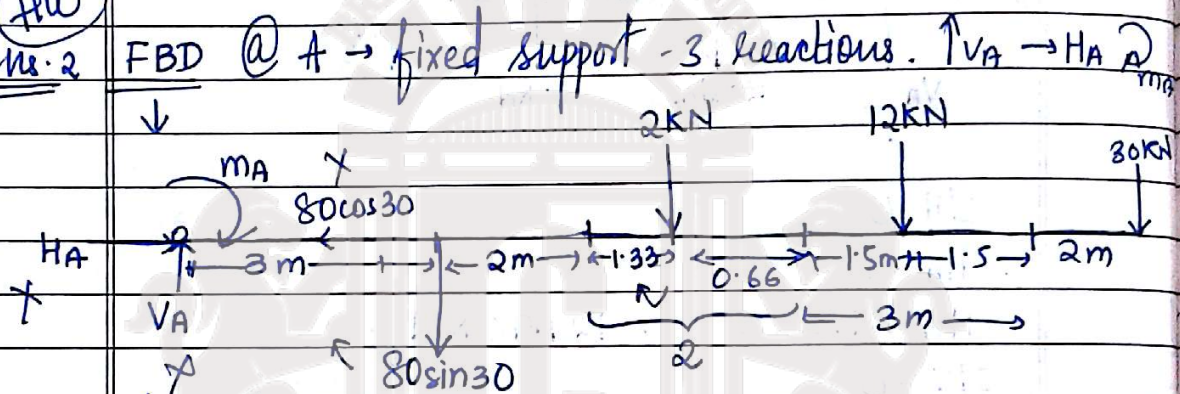 HW
Ns.2 FBD @ A → fixed support - 3 reactions. ↑VA → HA ↷ MA
↓ 2KN 12KN
MA 30KN
80cos30
HA 3m 2m 1.33 0.66 1.5m 1.5 2m
VA 2 3m
80sin30